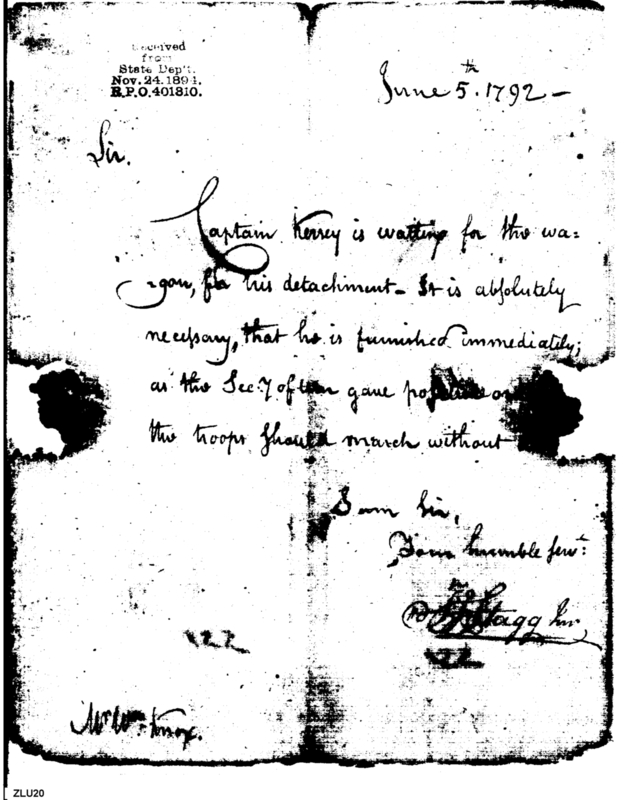 Received
from
State Dep't.
Nov. 24. 1894.
R.P.O. 401310.
June 5.th 1792 —
Sir.
Captain Kersey is waiting for the wa=
=gon, for his detachment — It is absolutely
necessary, that he is furnished immediately;
as the Secy. of war gave positive
the troops should march without
I am Sir,
Your humble servt:
Stagg Junr
22
22
Mr. Wm. Knox.
ZLU20